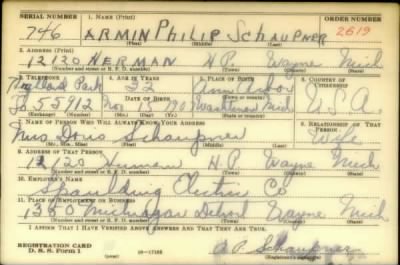 SERIAL NUMBER 1. NAME (Print) ORDER NUMBER
746 ARMIN PHILIP SCHAUPNER 2619
(First) (Middle) (Last)
2. ADDRESS (Print)
12120 HERMAN H.P. Wayne Mich
(Number and street or R. F. D. number) (Town) (County) (State)
3. TELEPHONE 4. AGE IN YEARS 5. PLACE OF BIRTH 6. COUNTRY OF CITIZENSHIP
Highland Park 32 Ann Arbor
(Town or county)
To 55912 DATE OF BIRTH Nov 15 1907 Washtenaw Mich U.S.A.
(Exchange) (Number) (Mo.) (Day) (Yr.) (State or country)
7. NAME OF PERSON WHO WILL ALWAYS KNOW YOUR ADDRESS 8. RELATIONSHIP OF THAT PERSON
Mrs Doris Schaupner Wife
(Mr., Mrs., Miss) (First) (Middle) (Last)
9. ADDRESS OF THAT PERSON
12120 Herman H.P. Wayne Mich
(Number and street or R. F. D. number) (Town) (County) (State)
10. EMPLOYER'S NAME
Spaulding Electric Co
11. PLACE OF EMPLOYMENT OR BUSINESS
Michigan Detroit Wayne Mich
(Number and street or R. F. D. number) (Town) (County) (State)
I AFFIRM THAT I HAVE VERIFIED ABOVE ANSWERS AND THAT THEY ARE TRUE.
REGISTRATION CARD
D. S. S. Form 1 (over) A P Schaupner
(Registrant's signature)